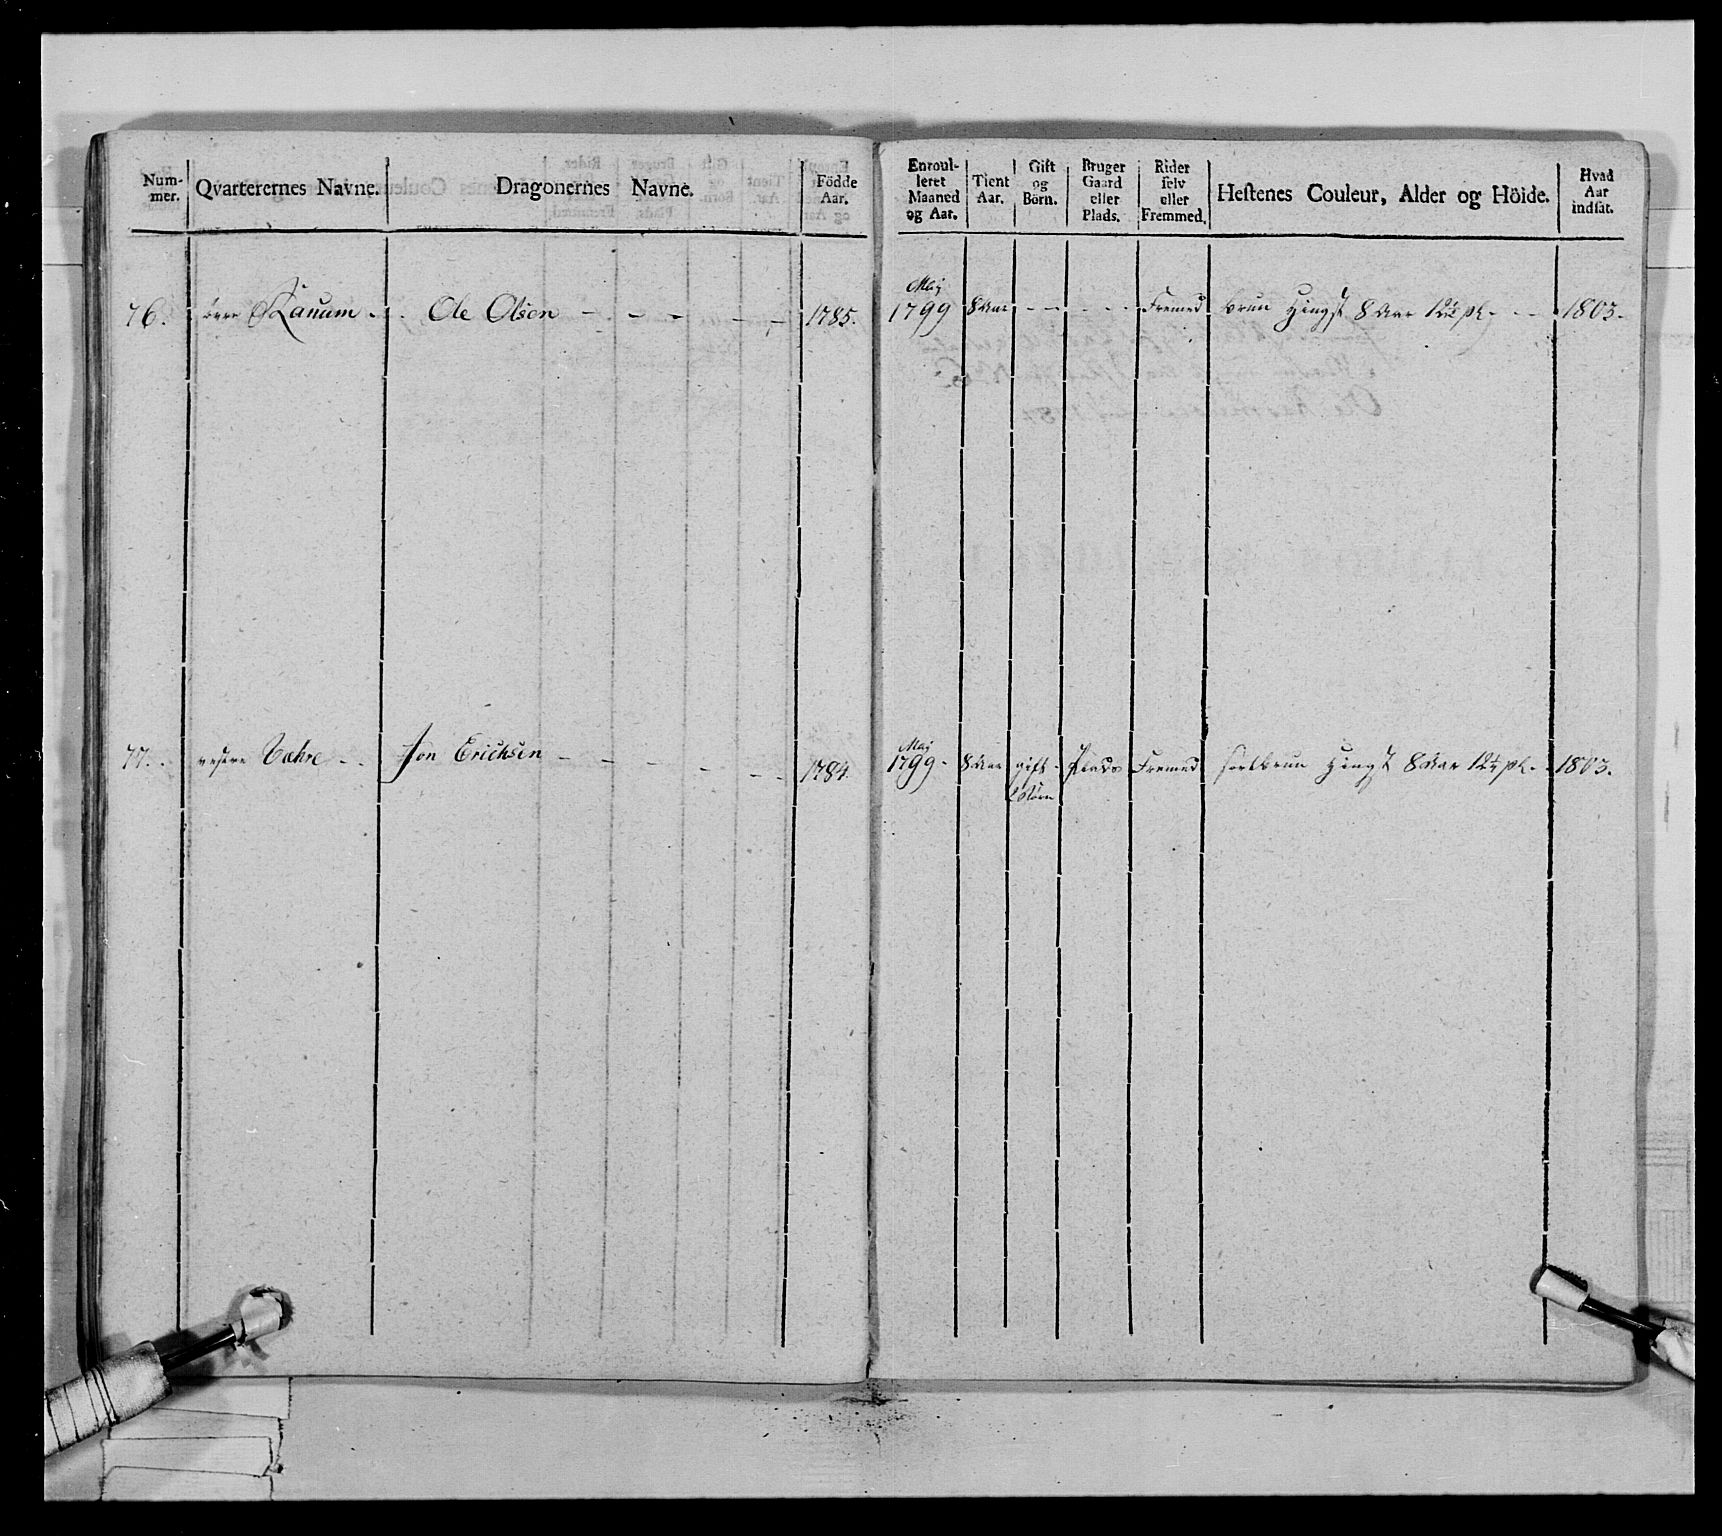 Num-
mer.
Qvarterernes Navne.
Dragonernes Navne.
Födde
Aar.
Enroul-
leret
Maaned
og Aar.
Tient
Aar.
Gift
og
Börn.
Bruger
Gaard
eller
Plads.
Rider
selv
eller
Fremmed.
Hestenes Couleur, Alder og Höide.
Hvad
Aar
indsat.
76. övre Skanum - . Ole Olsen - - - - - 1785. Maj
1799 8 Aar - - - - - Fremed brun Hingst 8 Aar - - 1803.
77. . vestre Væhre - . Jon Erichsen - - - - - - 1784 Maj
1799 - 8 Aar gift - Plads Fremed sortbrun Hingst 8 Aar - 1803.
2 Börn